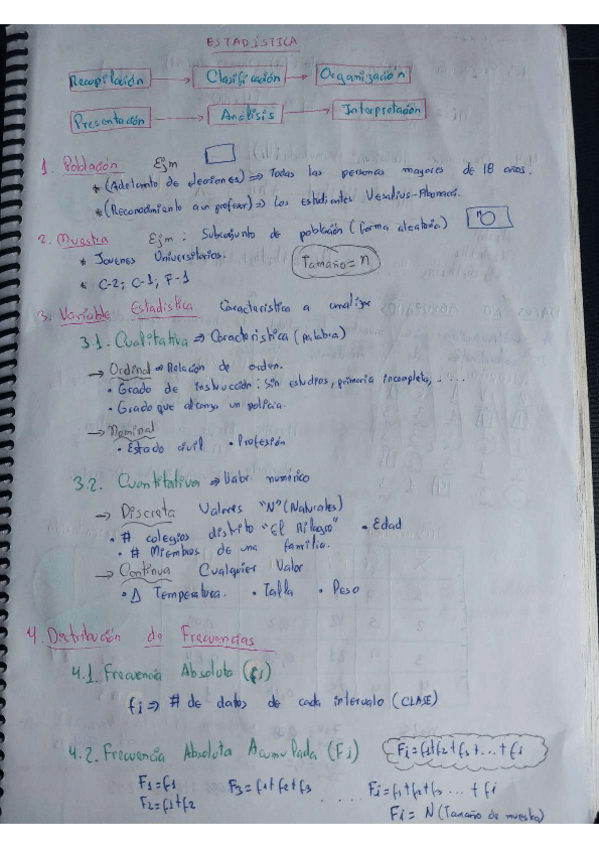 ESTADÍSTICA
Recopilación → Clasificación → Organización
Presentación → Análisis → Interpretación
1. Población Ejm
* (Adelanto de elecciones) ⇒ Todas las personas mayores de 18 años.
* (Reconocimiento a un profesor) ⇒ Los estudiantes Vesalius-
2. Muestra Ejm: Subconjunto de población (forma aleatoria) n
* Jovenes Universitarios. Tamaño = n
* C-2; C-1; F-1
3. Variable Estadística Característica a analizar
3.1. Cualitativa ⇒ Característica (palabra)
→ Ordinal ⇒ Relación de orden.
• Grado de instrucción: Sin estudios, primaria incompleta, ....
• Grado que alcanza un policia.
→ Nominal
• Estado civil • Profesión
3.2. Cuantitativa ⇒ Valor numérico
→ Discreta Valores "N" (Naturales)
• # colegios distrito "El Milagro" • Edad
• # Miembros de una familia.
→ Continua Cualquier Valor
• Δ Temperatura. • Talla • Peso
4. Distribución de Frecuencias
4.1. Frecuencia Absoluta (fi)
fi ⇒ # de datos de cada intervalo (CLASE)
4.2. Frecuencia Absoluta Acumulada (Fi) Fi = f1+f2+f3+...+fi
F1 = f1 F3 = f1+f2+f3 ..... Fi = f1+f2+f3 ... + fi
F2 = f1+f2 Fi = N (Tamaño de muestra)